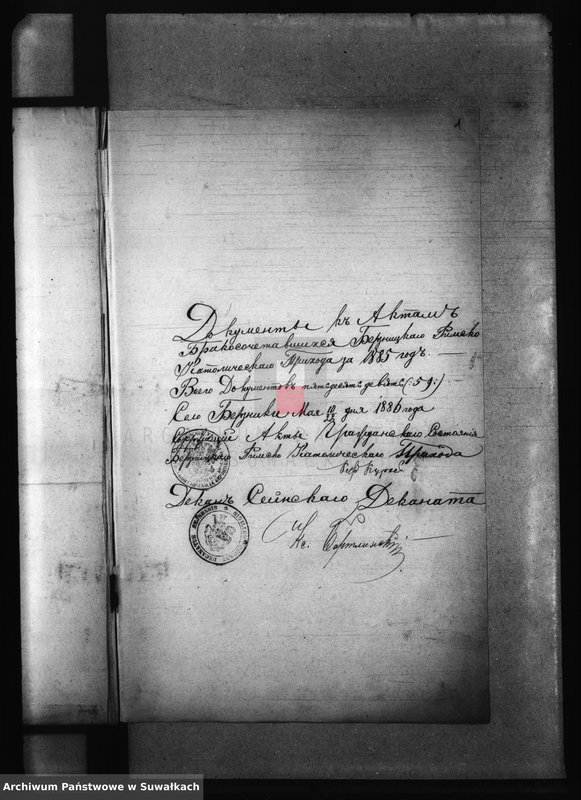 1
Документы къ Актамъ
Бракосочетавшихся Берницкаго Римско
Католическаго Прихода за 1885 годъ
Всего Документовъ пятьдесятъ девять (:59:)
Село Берники Мая 10/22 дня 1886 года
Акты Гражданскаго Состоянія
Берницкаго Римско Католическаго Прихода
Деканъ Сейнскаго Деканата
Кс.
Archiwum Państwowe w Suwałkach